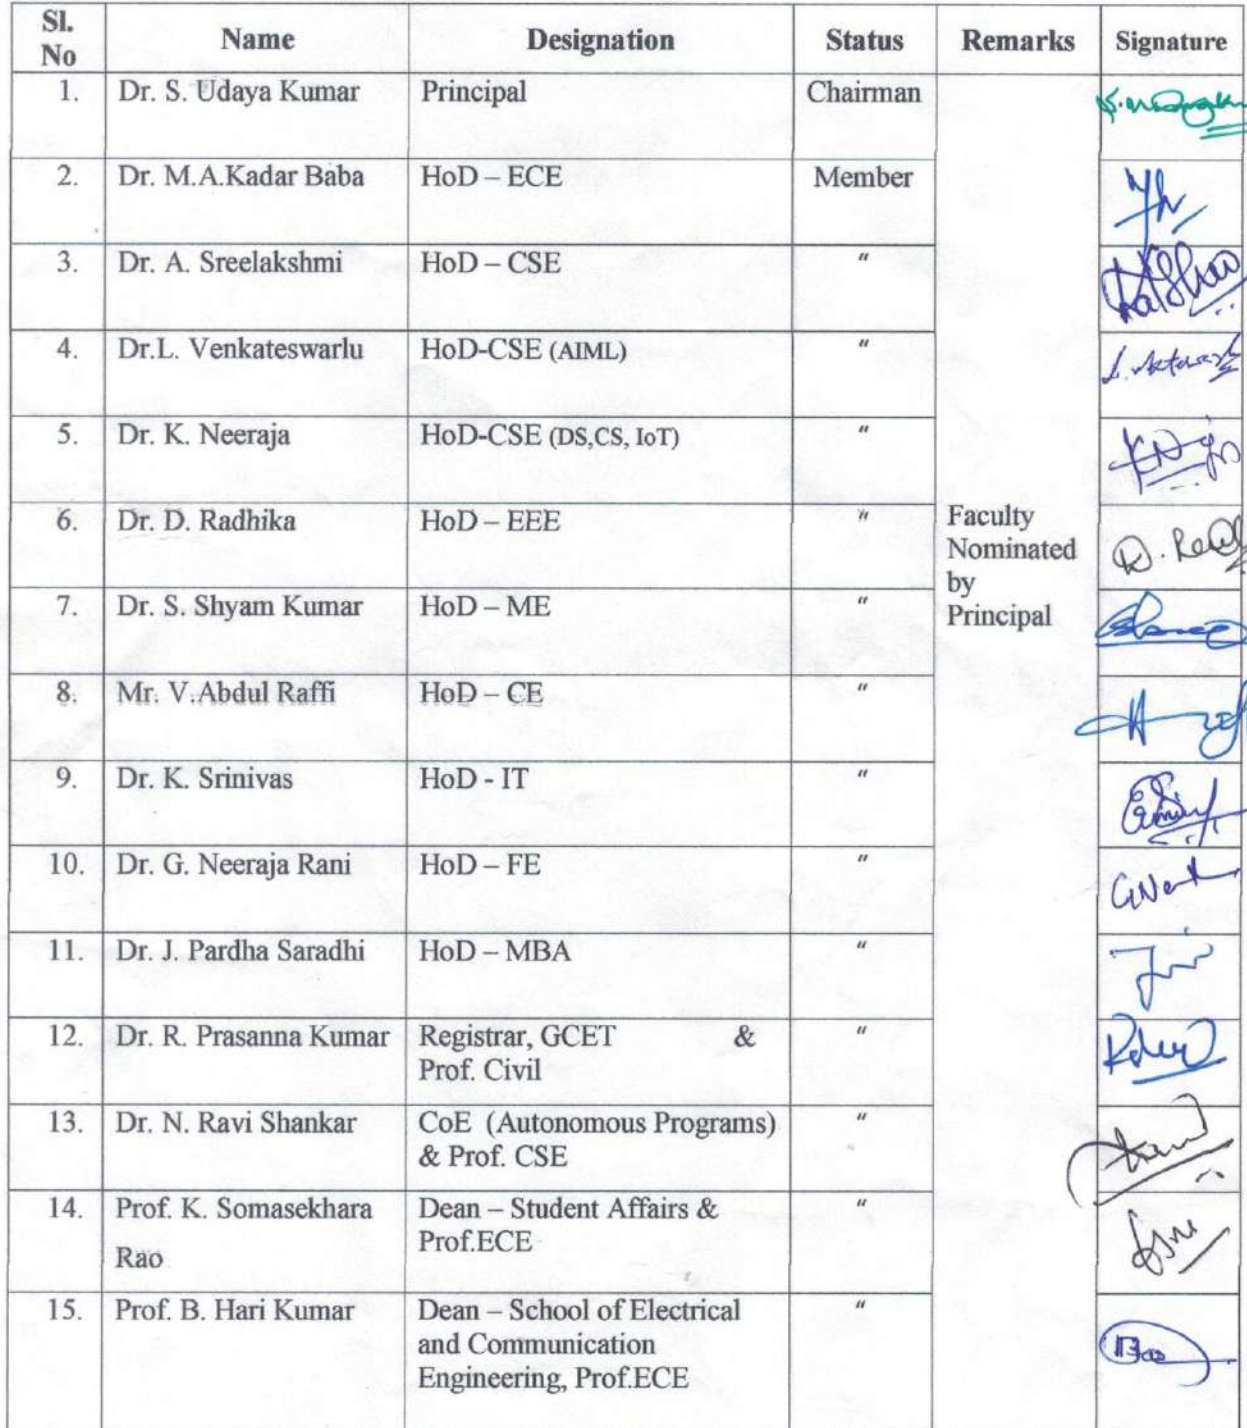 Sl. No Name Designation Status Remarks Signature
1. Dr. S. Udaya Kumar Principal Chairman
2. Dr. M.A.Kadar Baba HoD – ECE Member
3. Dr. A. Sreelakshmi HoD – CSE "
4. Dr.L. Venkateswarlu HoD-CSE (AIML) "
5. Dr. K. Neeraja HoD-CSE (DS,CS, IoT) "
6. Dr. D. Radhika HoD – EEE " Faculty
Nominated
by
7. Dr. S. Shyam Kumar HoD – ME " Principal
8. Mr. V.Abdul Raffi HoD – CE "
9. Dr. K. Srinivas HoD - IT "
10. Dr. G. Neeraja Rani HoD – FE "
11. Dr. J. Pardha Saradhi HoD – MBA "
12. Dr. R. Prasanna Kumar Registrar, GCET & "
Prof. Civil
13. Dr. N. Ravi Shankar CoE (Autonomous Programs) "
& Prof. CSE
14. Prof. K. Somasekhara Dean – Student Affairs & "
Rao Prof.ECE
15. Prof. B. Hari Kumar Dean – School of Electrical "
and Communication
Engineering, Prof.ECE